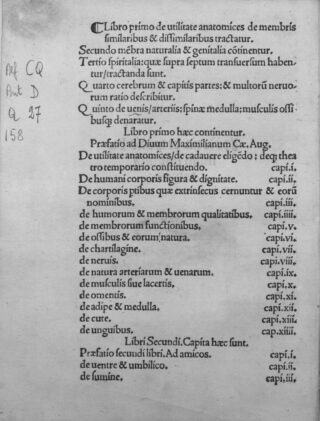 Libro primo de utilitate anatomices de membris
similaribus & dissimilaribus tractatur.
Secundo mēbra naturalia & genitalia cōtinentur.
Tertio spiritalia: quæ supra septum transuersum haben-
tur/tractanda sunt.
Quarto cerebrum & capitis partes: & multorū neruo-
rum ratio describitur.
Quinto de uenis/arteriis: spinæ medulla; musculis ossi-
busq; denaratur.
Libro primo hæc continentur.
Præfatio ad Diuum Maximilianum Cæ. Aug.
De utilitate anatomices/de cadauere eligēdo: deq; thea
tro temporario constituendo. capi.i.
De humani corporis figura & dignitate. capi.ii.
De corporis ptibus quæ extrinsecus cernuntur & eorū
nominibus. capi.iii.
de humorum & membrorum qualitatibus. capi.iiii.
de membrorum functionibus. capi.v.
de ossibus & eorum natura. capi.vi.
de chartilagine. capi.vii.
de neruis. capi.viii.
de natura arteriarum & uenarum. capi.ix.
de musculis siue lacertis. capi.x.
de omentis. capi.xi.
de adipe & medulla. capi.xii.
de cute. capi.xiii.
de unguibus. cap.xiiii.
Libri Secundi. Capita hæc sunt.
Præfatio secundi libri. Ad amicos. capi.i.
de uentre & umbilico. capi.ii.
de sumine. capi.iii.
CQ
D
Q 27
158